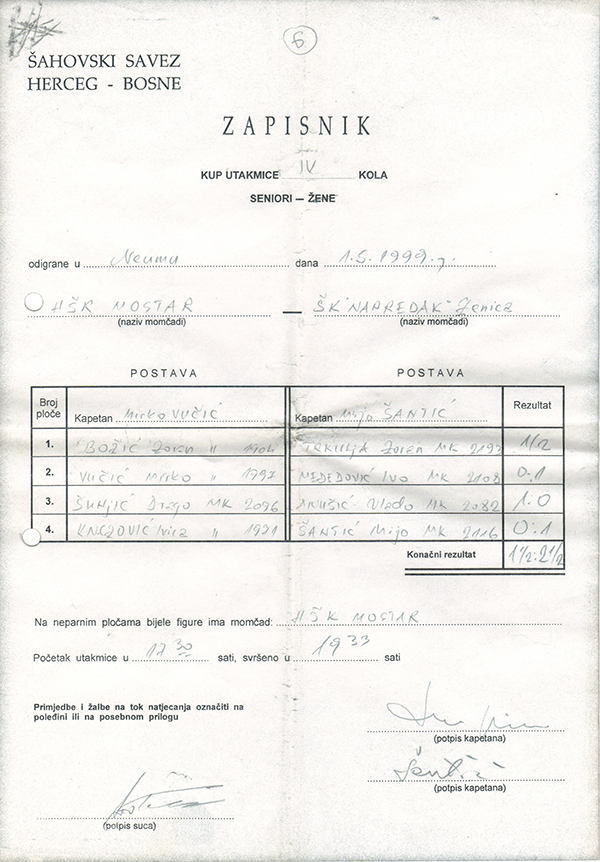 6
ŠAHOVSKI SAVEZ
HERCEG - BOSNE
ZAPISNIK
KUP UTAKMICE IV KOLA
SENIORI — ŽENE
odigrane u Neumu dana 1.5.1999.g.
HŠK MOSTAR — ŠK "NAPREDAK" Zenica
(naziv momčadi) (naziv momčadi)
POSTAVA POSTAVA
Broj ploče Kapetan Mirko VUČIĆ Kapetan Mijo ŠANTIĆ Rezultat
1. BOŽIĆ Zoran " Zoran MK 2197 1/2
2. VUČIĆ Mirko " 1997 MEDEDOVIĆ Ivo MK 2108 0:1
3. ŠUNJIĆ Drago MK 2096 Vlado MK 2082 1:0
4. KNEZOVIĆ Ivica " 1991 ŠANTIĆ Mijo MK 2116 0:1
Konačni rezultat 1 1/2 : 2 1/2
Na neparnim pločama bijele figure ima momčad: HŠK MOSTAR
Početak utakmice u 17 30 sati, svršeno u 19 33 sati
Primjedbe i žalbe na tok natjecanja označiti na
poleđini ili na posebnom prilogu
(potpis kapetana)
Šantić
(potpis kapetana)
(potpis suca)